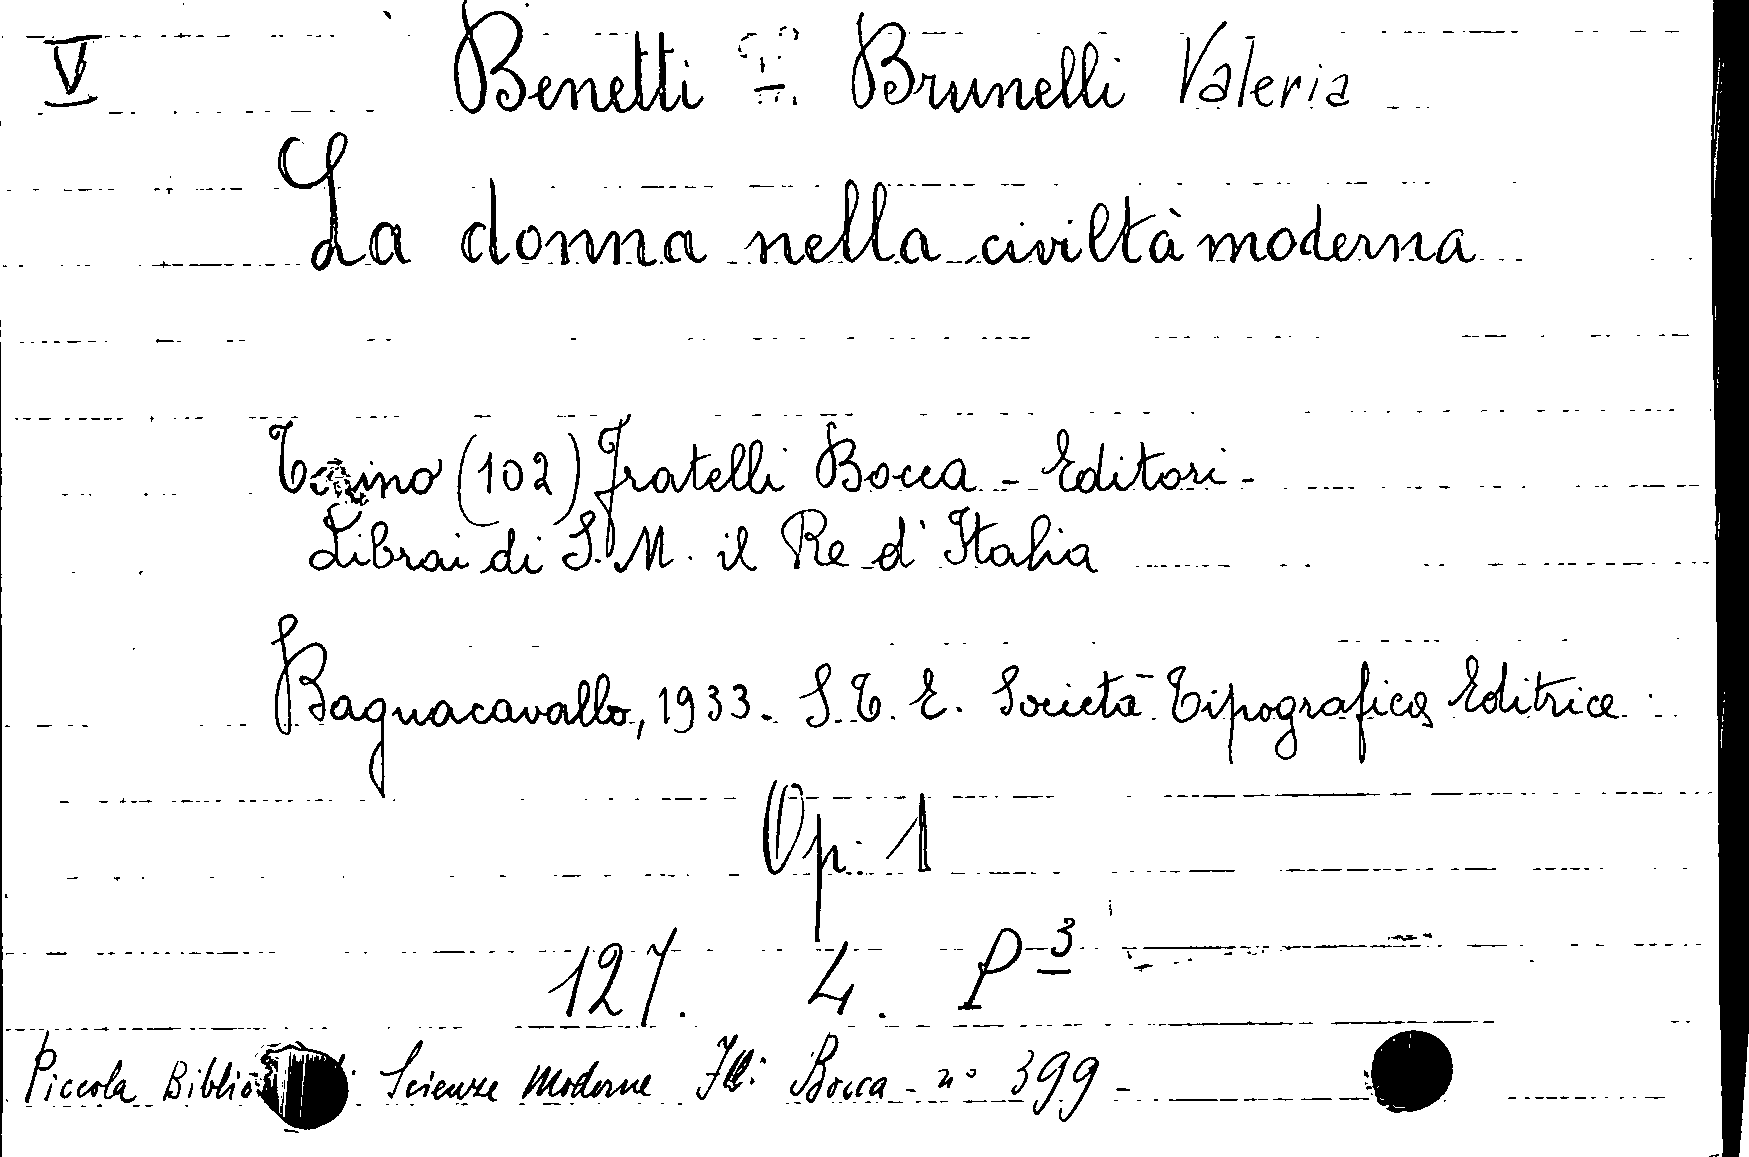 V Benetti - Brunelli Valeria
La donna nella civiltà moderna
Torino (102) Fratelli Bocca - Editori -
Librai di S. M. il Re d'Italia
Bagnacavallo, 1933. S. T. E. Società Tipografica Editrice
Op. 1
127. 4. P 3
Piccola Scienze Moderne Flli Bocca - n° 399 -